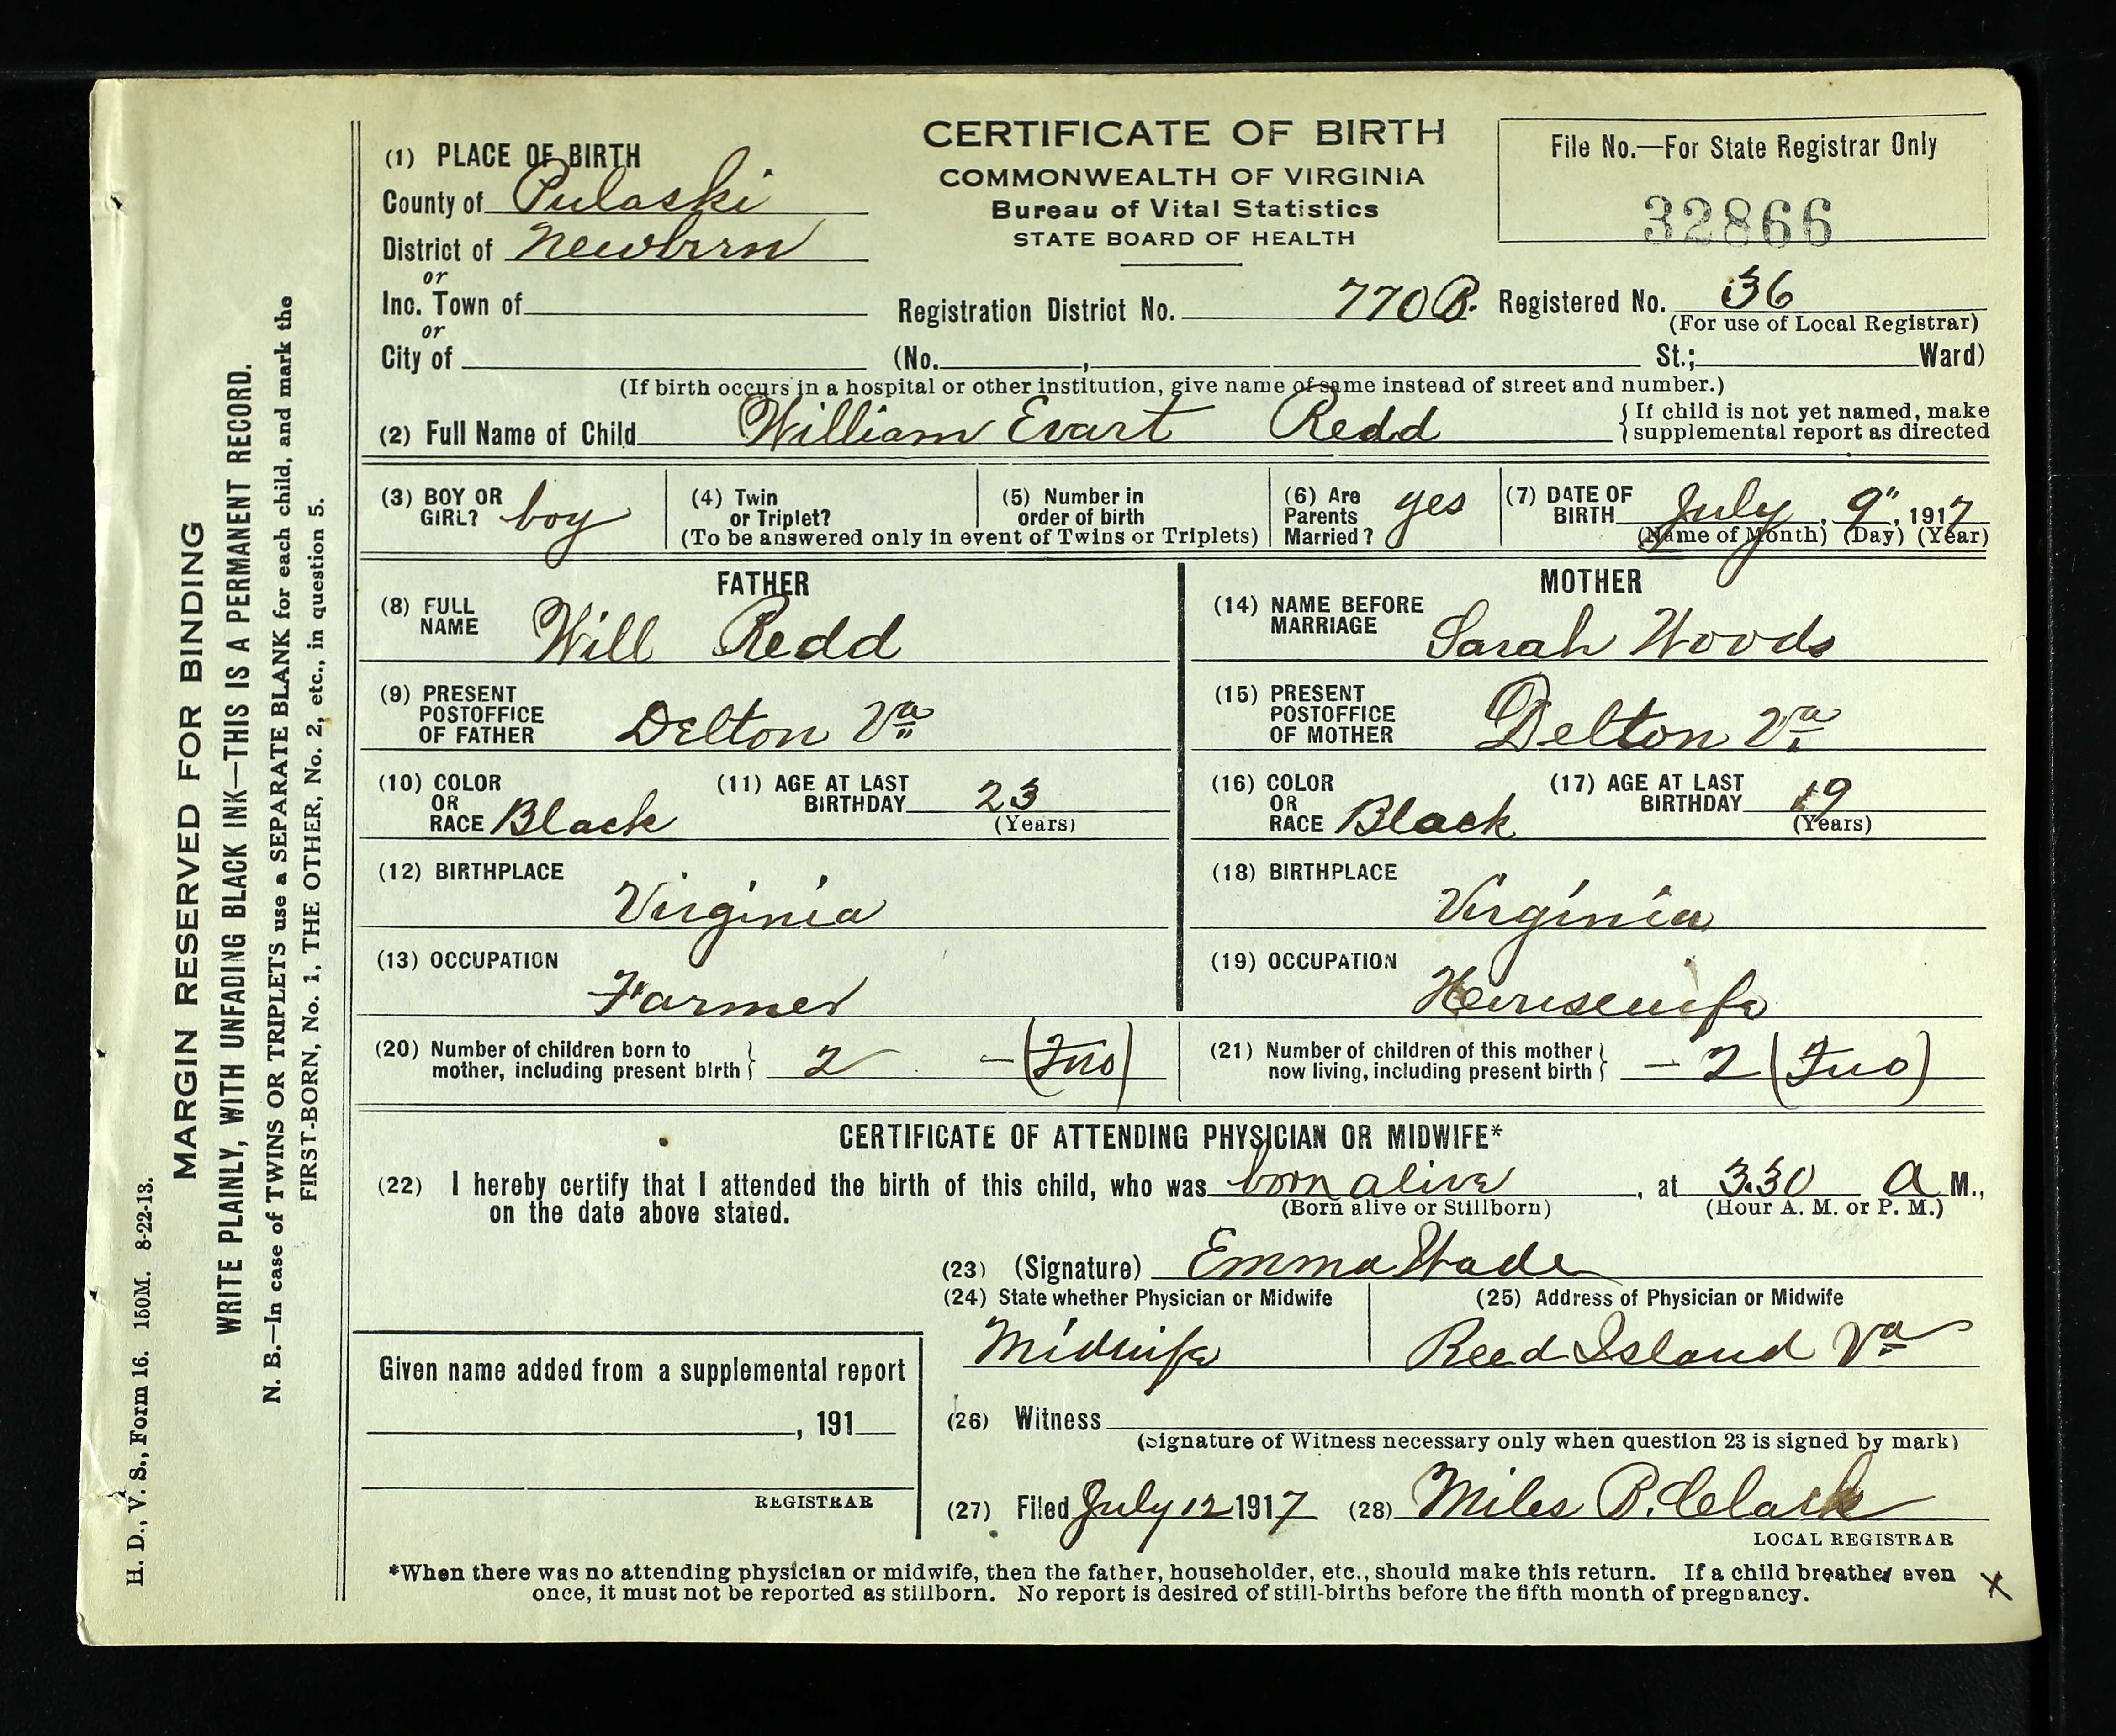 CERTIFICATE OF BIRTH
COMMONWEALTH OF VIRGINIA
Bureau of Vital Statistics
STATE BOARD OF HEALTH
File No.—For State Registrar Only
32866
(1) PLACE OF BIRTH
County of Pulaski
District of Newbern
or
Inc. Town of
or
City of
Registration District No. 770B. Registered No. 36
(For use of Local Registrar)
(No. , St.; Ward)
(If birth occurs in a hospital or other institution, give name of same instead of street and number.)
(2) Full Name of Child William Evart Redd
{If child is not yet named, make
supplemental report as directed
(3) BOY OR GIRL? boy
(4) Twin or Triplet?
(5) Number in order of birth
(To be answered only in event of Twins or Triplets)
(6) Are Parents Married? yes
(7) DATE OF BIRTH July, 9", 1917
(Name of Month) (Day) (Year)
FATHER
(8) FULL NAME Will Redd
(9) PRESENT POSTOFFICE OF FATHER Delton Va
(10) COLOR OR RACE Black
(11) AGE AT LAST BIRTHDAY 23
(Years)
(12) BIRTHPLACE
Virginia
(13) OCCUPATION
Farmer
MOTHER
(14) NAME BEFORE MARRIAGE Sarah Woods
(15) PRESENT POSTOFFICE OF MOTHER Delton Va
(16) COLOR OR RACE Black
(17) AGE AT LAST BIRTHDAY 19
(Years)
(18) BIRTHPLACE
Virginia
(19) OCCUPATION
Housewife
(20) Number of children born to
mother, including present birth} 2 —(Two)
(21) Number of children of this mother
now living, including present birth} — 2 (Two)
CERTIFICATE OF ATTENDING PHYSICIAN OR MIDWIFE*
(22) I hereby certify that I attended the birth of this child, who was born alive, at 3.30 a M.,
(Born alive or Stillborn) (Hour A. M. or P. M.)
on the date above stated.
(23) (Signature) Emma Wade
(24) State whether Physician or Midwife
Midwife
(25) Address of Physician or Midwife
Reed Island Va
Given name added from a supplemental report
, 191
REGISTRAR
(26) Witness
(Signature of Witness necessary only when question 23 is signed by mark)
(27) Filed July 12 1917 (28) Miles P. Clark
LOCAL REGISTRAR
*When there was no attending physician or midwife, then the father, householder, etc., should make this return. If a child breathes even
once, it must not be reported as stillborn. No report is desired of still-births before the fifth month of pregnancy.
X
H. D., V. S., Form 16. 150M. 8-22-13.
MARGIN RESERVED FOR BINDING
WRITE PLAINLY, WITH UNFADING BLACK INK—THIS IS A PERMANENT RECORD.
N. B.—In case of TWINS OR TRIPLETS use a SEPARATE BLANK for each child, and mark the
FIRST-BORN, No. 1, THE OTHER, No. 2, etc., in question 5.